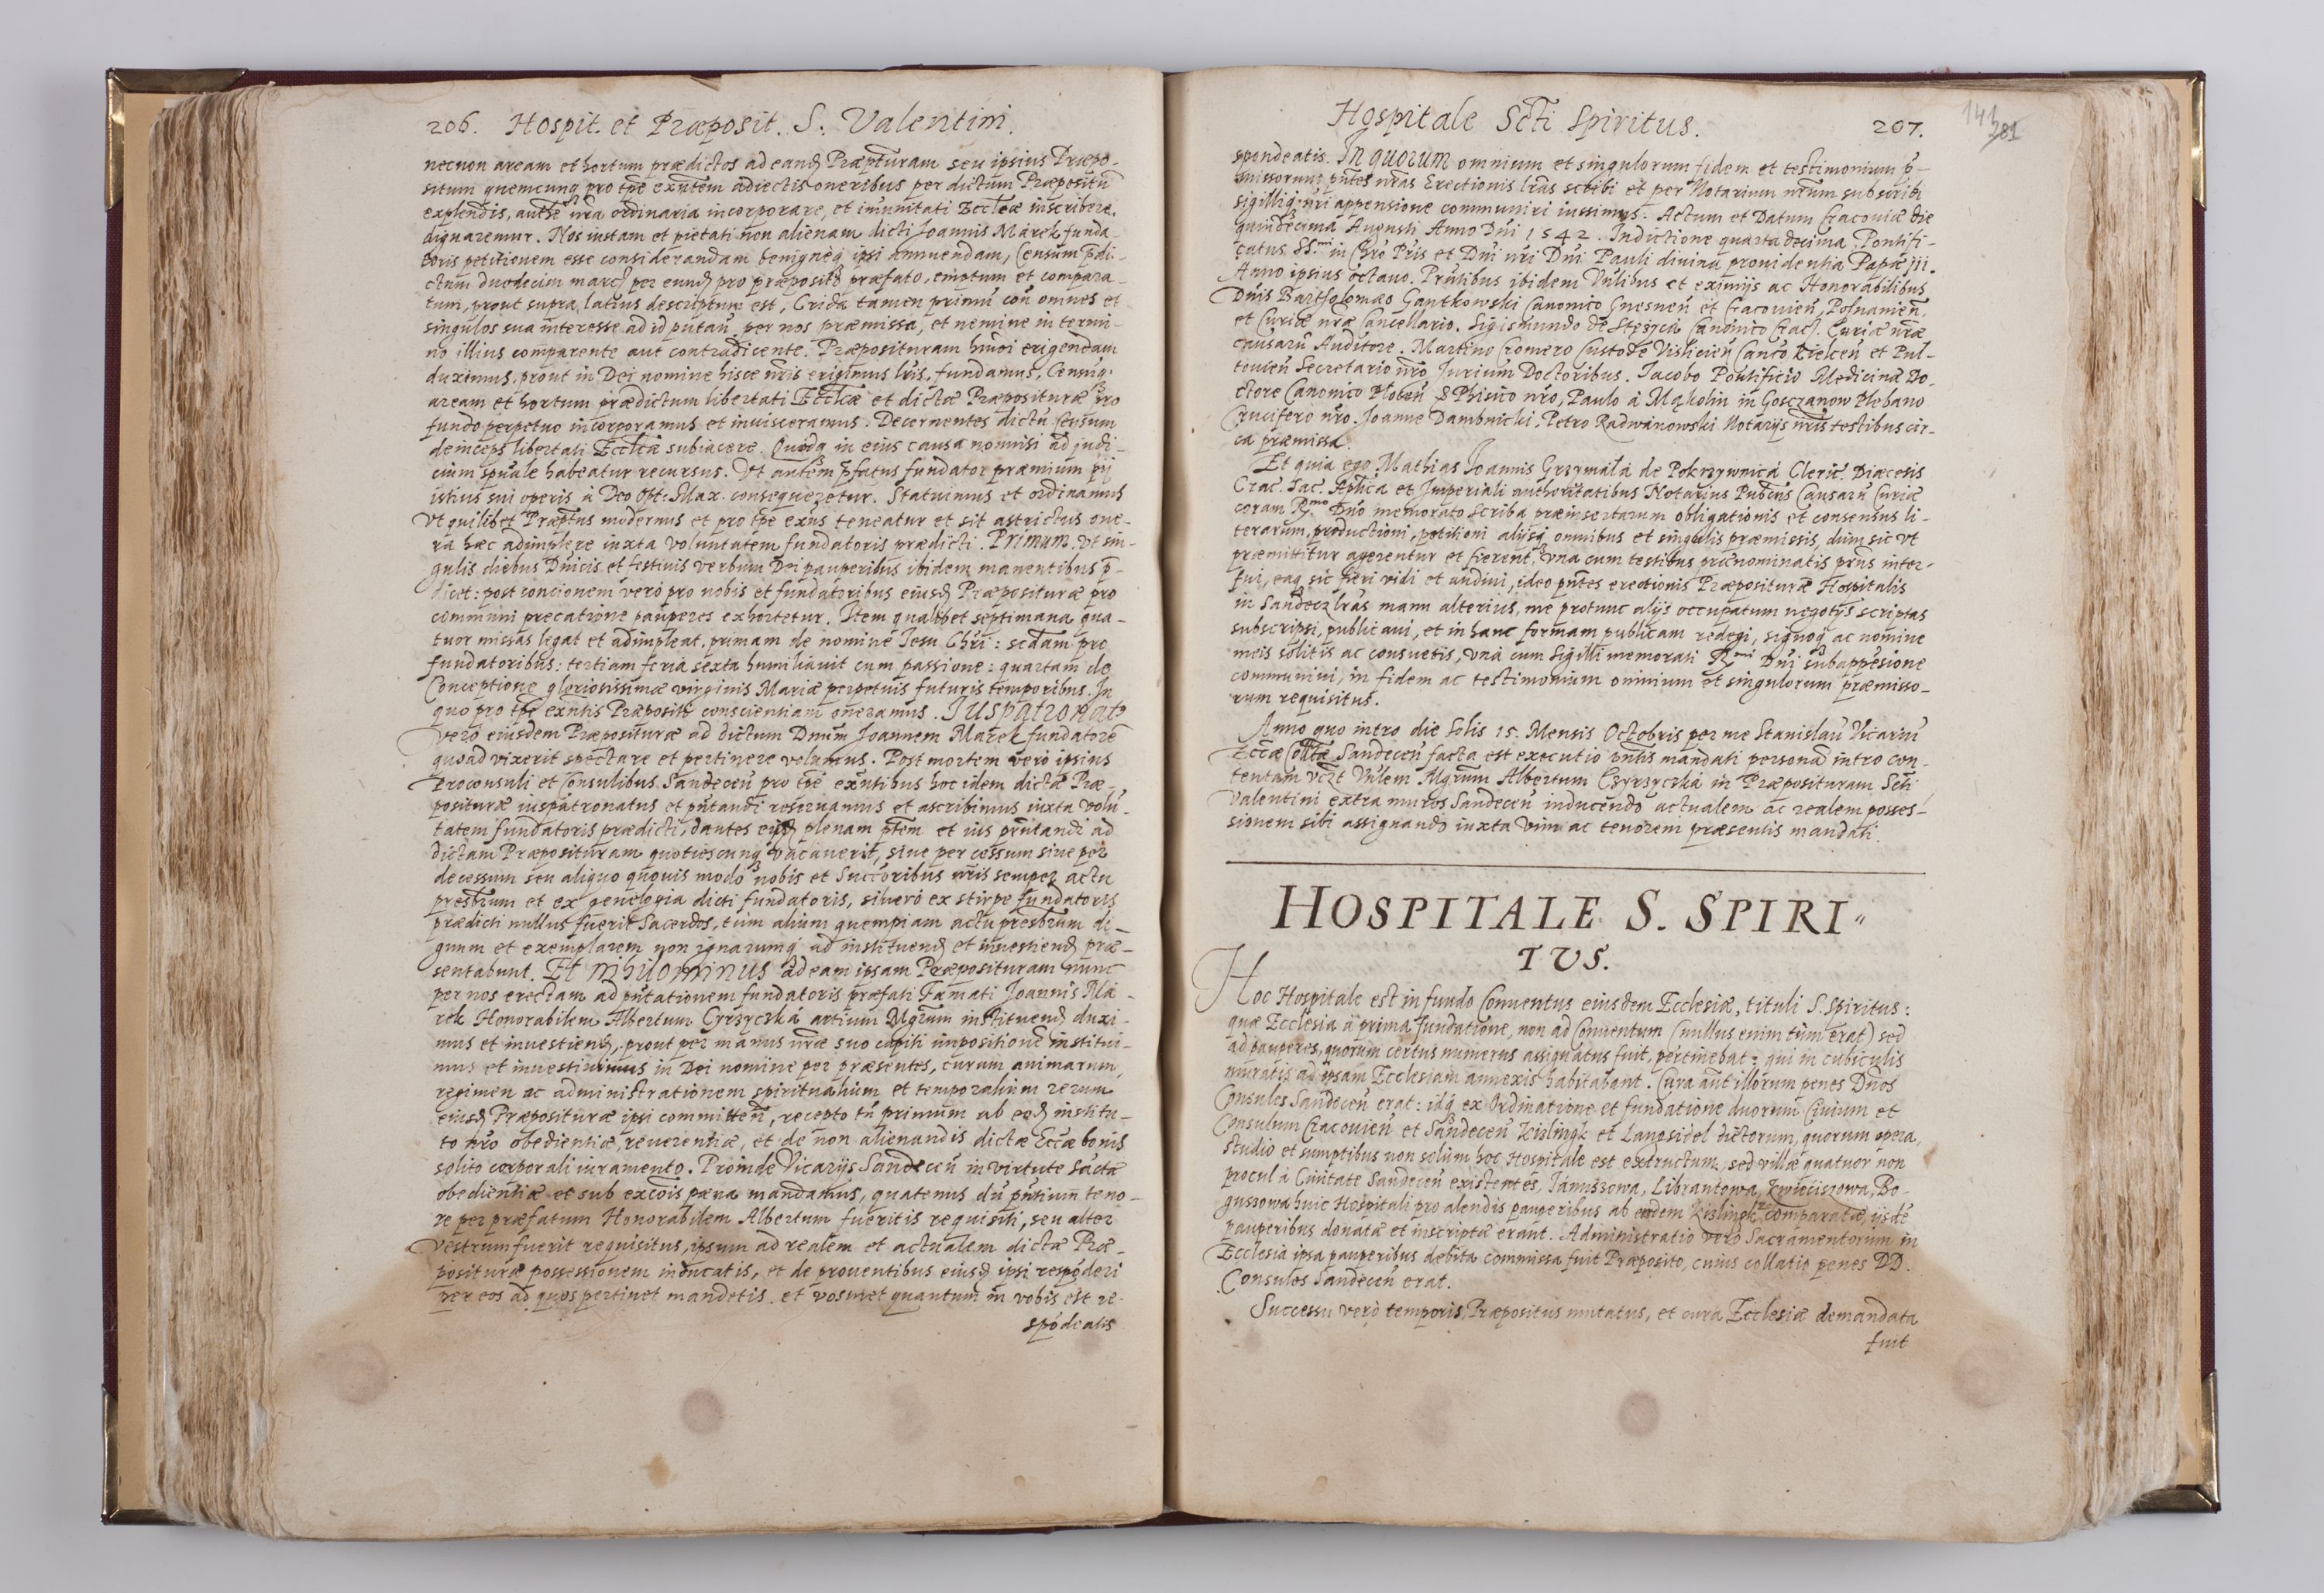 206. Hospit. et Præposit. S. Valentini.
necnon aream et hortum prædictos ad eand Præpturam seu ipsius Præpo-
situm quemcunq pro tpe exñtem adiectis oneribus per dictum Præpositũ
explendis, authe nrã ordinaria incorporare, et imunitati Eccleæ inscribere
dignaremur. Nos iustam et pietati non alienam dicti Joannis Marek funda-
toris petitionem esse considerandam benigneq ipsi annuendam, Censum pdi-
ctum duodecim marc per eund pro præposito præfato emptum et compara-
tum, prout supra latius descriptum est, Crida tamen primũ cõn omnes et
singulos sua interesse ad id putañ per nos præmissa, et nemine in termi-
no illius comparente aut contradicente. Præposituram hmõi erigendam
duximus, prout in Dei nomine hisce nris erigimus lris, fundamus, Censũq
aream et hortum prædictum libertati Eccleæ et dictæ Præposituræ pro
fundo perpetuo incorporamus et inuisceramus. Decernentes dictũ censum
deinceps libertati Eccleæ subiacere. Quodq in eius causa nonnisi ad judi-
cium spũale habeatur recursus. Vt autem pfatus fundator præmium pij
istius sui operis à Deo Opt: Max. consequeretur. Statuimus et ordinamus
vt quilibet Præptus modernus et pro tpe exñs teneatur et sit astrictus one-
ra hæc adimplere iuxta voluntatem fundatoris prædicti. Primum. vt sin-
gulis diebus Dnicis et festiuis verbum Dei pauperibus ibidem manentibus p-
dicet: post concionem verò pro nobis et fundatoribus eiusd Præposituræ pro
communi precatione pauperes exhortetur. Item qualibet septimana qua-
tuor missas legat et adimpleat, primam de nomine Iesu Chri: sedam pro
fundatoribus: tertiam feria sexta humiliauit cum passione: quartam de
Conceptione gloriosissimæ virginis Mariæ perpetuis futuris temporibus. In
quo pro tpe exñtis Præpositi conscientiam oneramus. Juspatronat9
vero eiusdem Præposituræ ad dictum Dnum Joannem Marek fundatorẽ
quoad vixerit spectare et pertinere volumus. Post mortem verò ipsius
Proconsuli et Consulibus Sandeceñ pro tpe exñtibus hoc idem dictæ Præ-
posituræ iuspatronatus et pñtandi reseruamus et ascribimus iuxta volũ-
tatem fundatoris prædicti, dantes eisd plenam ptem et ius pñtandi ad
dictam Præposituram quotiescunq vacauerit, siue per cessum siue per
decessum seu aliquo quouis modo nobis et Succoribus nris semper actu
presbrum et ex genelogia dicti fundatoris, si verò ex stirpe fundatoris
prædicti nullus fuerit Sacerdos, tum alium quempiam actu presbrum di-
gnum et exemplarem non ignarumq ad instituend et inuestiend præ-
sentabunt. Et nihilominus ad eam ipsam Præposituram nunc
per nos erectam ad pñtationem fundatoris præfati Famati Joannis Ma-
rek Honorabilem Albertum Cyrzyczká artium Mgrum instituend duxi-
mus et inuestiend, prout per manus nræ suo capiti impositionẽ institui-
mus et inuestiuimus in Dei nomine per præsentes, curam animarum,
regimen ac administrationem spiritualium et temporalium rerum
eiusd Præposituræ ipsi committeñ, recepto tñ primum ab eod institu-
to nro obedientiæ, reuerentiæ, et de non alienandis dictæ Eccæ bonis
solito corporali iuramento. Proinde Vicarijs Sandeceñ in virtute sactæ
obedientiæ et sub excõis pæna mandamus, quatenus dũ pñtium teno-
re per præfatum Honorabilem Albertum fueritis requisiti, seu alter
vestrum fuerit requisitus, ipsum ad realem et actualem dictæ Præ-
posituræ possessionem inducatis, et de prouentibus eiusd ipsi respõderi
per eos ad quos pertinet mandetis. et vosmet quantum in vobis est re-
spõdeatis
Hospitale Scti Spiritus. 207.
141
281
spondeatis. In quorum omnium et singulorum fidem et testimonium p-
missorum pñtes nras Erectionis lras scribi et per Notarium nrum subscribi
sigilliq nri appensione communiri iussimus. Actum et Datum Cracouiæ die
quindecima Augusti Anno Dni 1542. Indictione quarta decima, Pontifi-
catus SS.mi in Chro Pris et Dni nri Dni Pauli diuina prouidentia Papæ iii.
Anno ipsius octauo. Pñtibus ibidem Vnlibus et eximijs ac Honorabilibus
Dnis Bartholomæo Gantkowski Canonico Gnesneñ et Cracouieñ, Posnanieñ,
et Curiæ nræ Cancellario. Sigismundo de Stęzyca Canonico Crac. Curiæ nræ
causarũ Auditore. Martino Cromero Custode Vislicieñ Canco Kielceñ et Pul-
touieñ Secretario nro Jurium Doctoribus. Jacobo Pontificio Medicinæ Do-
ctore Canonico Ploceñ & Phisico nro, Paulo à Mąkolin in Gosczanow Plebano
Crucifero nro. Joanne Dambnicki, Petro Radwanowski Notarijs nris testibus cir-
ca præmissa.
Et quia ego Mathias Joannis Grzymala de Pokrzywnica Cleric. Diæcesis
Crac. Sac. Aplica et Imperiali authoritatibus Notarius Publicus Causarũ Curiæ
coram R.mo Dno memorato scriba præinsertarum obligationis et consensus li-
terarum, productioni, petitioni alijsq omnibus et singulis præmissis, dum sic vt
præmittitur agerentur et fierent, vna cum testibus prænominatis pñs inter-
fui, eaq sic fieri vidi et audiui, ideo pñtes erectionis Præposituræ Hospitalis
in Sandecz lras manu alterius, me protunc alijs occupatum negotijs scriptas
subscripsi, publicaui, et in hanc formam publicam redegi, signoq ac nomine
meis solitis ac consuetis, vnà cum sigilli memorati R.mi Dni subappẽsione
communiui, in fidem ac testimonium omnium et singulorum præmisso-
rum requisitus.
Anno quo intro die Solis 15. Mensis Octobris per me Stanislaũ Vicariũ
Eccæ Colltæ Sandeceñ facta est executio pñtis mandati personã intro con-
tentam vizt Vnlem Mgrum Albertum Czyrzyczká in Præposituram Scti
Valentini extra muros Sandeceñ inducendo actualem ac realem posses-
sionem sibi assignando iuxta vim ac tenorem præsentis mandati.
HOSPITALE S. SPIRI"
TVS.
Hoc Hospitale est in fundo Conuentus eiusdem Ecclesiæ, tituli S. Spiritus:
quæ Ecclesia à prima fundatione, non ad Conuentum (nullus enim tum erat) sed
ad pauperes, quorum certus numerus assignatus fuit, pertinebat: qui in cubiculis
muratis ad ipsam Ecclesiam annexis habitabant. Cura aũt illorum penes Dños
Consules Sandeceñ erat: idq ex ordinatione et fundatione duorum Ciuium et
Consulum Cracouieñ et Sandeceñ Kislingk et Langsidel dictorum, quorum opera,
studio et sumptibus non solùm hoc Hospitale est extructum, sed villæ quatuor non
procul à Ciuitate Sandeceñ existentes, Januszowa, Librantowa, Kwieciszowa, Bo-
guszowa huic Hospitali pro alendis pauperibus ab eodem Kislingk comparatæ, ijsdẽ
pauperibus donatæ et inscriptæ erant. Administratio verò Sacramentorum in
Ecclesia ipsa pauperibus debita commissa fuit Præposito, cuius collatio penes DD.
Consules Sandeceñ erat.
Successu verò temporis, Præpositus mutatus, et cura Ecclesiæ demandata
fuit